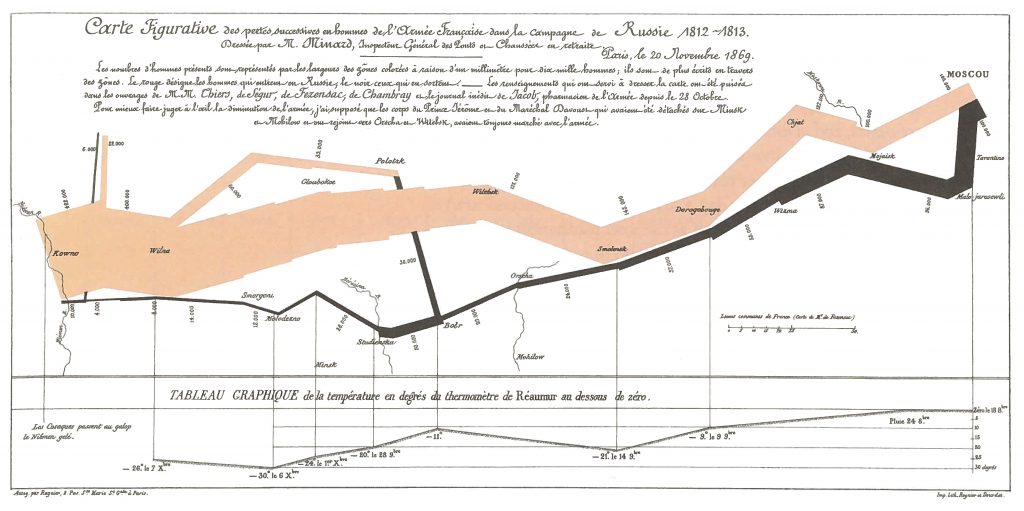 Carte Figurative des pertes successives en hommes de l'Armée Française dans la campagne de Russie 1812-1813.
Dressée par M. Minard, Inspecteur Général des Ponts et Chaussées en retraite.
Paris, le 20 Novembre 1869.
Les nombres d'hommes présents sont représentés par les largeurs des zônes colorées à raison d'un millimètre pour dix mille hommes; ils sont de plus écrits en travers
des zônes. Le rouge désigne les hommes qui entrent en Russie, le noir ceux qui en sortent. Les renseignements qui ont servi à dresser la carte ont été puisés
dans les ouvrages de M.M. Chiers, de Ségur, de Fezensac, de Chambray et le journal inédit de Jacob, pharmacien de l'Armée depuis le 28 Octobre.
Pour mieux faire juger à l'œil la diminution de l'armée, j'ai supposé que les corps du Prince Jérôme et du Maréchal Davoust qui avaient été détachés sur Minsk
et Mohilow et ont rejoint vers Orscha et Witebsk, avaient toujours marché avec l'armée.
MOSCOU
Mojaisk
Chjat
Tarantino
Malo-jarosewli
Wizma
Dorogobouge
Smolensk
Orscha
Mohilow
Witebsk
Polotzk
Gloubokoe
Wilna
Kowno
Niémen R.
Smorgoni
Molodezno
Minsk
Studienska
Bobr
422.000
400.000
22.000
6.000
60.000
33.000
145.000
100.000
37.000
24.000
20.000
50.000
28.000
12.000
14.000
8.000
4.000
10.000
30.000
Lieues communes de France (Carte de M. de Fezensac)
TABLEAU GRAPHIQUE de la température en degrés du thermomètre de Réaumur au dessous de zéro.
Les Cosaques passent au galop
le Niémen gelé.
Zéro le 18 8.bre
Pluie 24 8.bre
- 9.° le 9 9.bre
- 21.° le 14 9.bre
- 11.°
- 20.° le 28 9.bre
- 24.° le 1.er X.bre
- 30.° le 6 X.bre
- 26.° le 7 X.bre
5
10
15
20
25
30 degrés
Autog. par Regnier, 8. Pas. S.te Marie S.t G.ain à Paris.
Imp. Lith. Regnier et Dourdet.